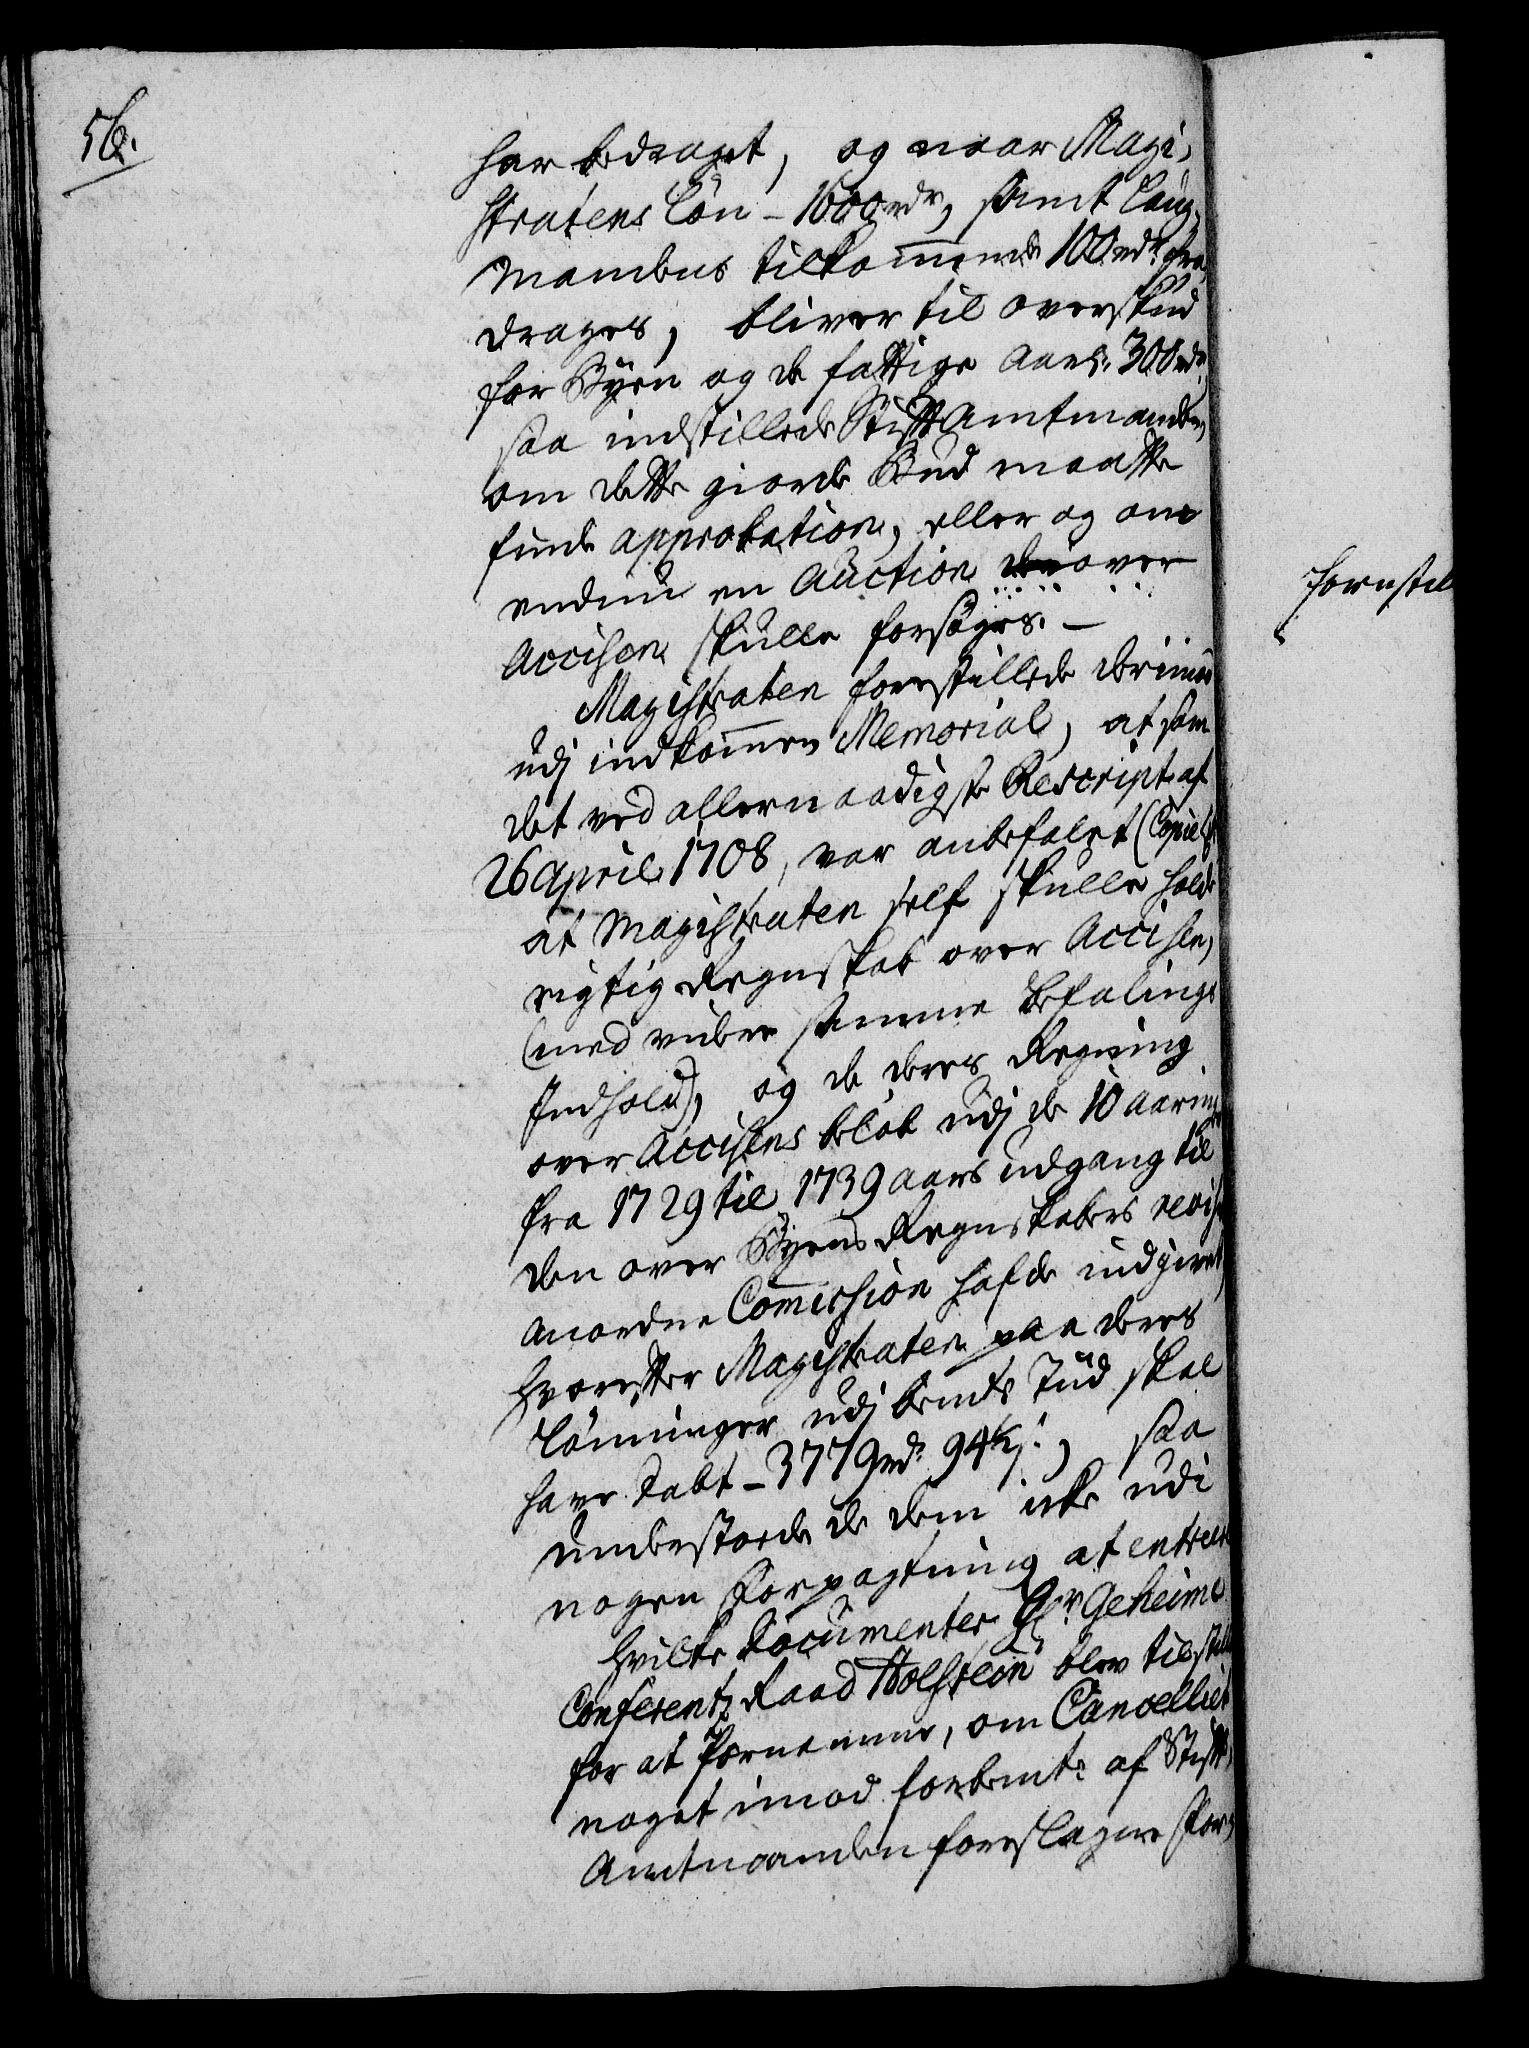 56.
har bedraget, og naar Magi-
stratens Løn – 1600 rdr, samt Laug-
mandens tilkom̅ende 100 rdr fra-
drages, bliver til overskud
for Byen og de fattige Aarl: 300 rdr,
saa indstillede Stift Amtmanden,
om dette giorde Bud maatte
finde approbation, eller og om
endnu en Auction derover
Accisen skulle forsøges. –
Magistraten forestillede derimod
udj indkom̅en Memorial, at som
det ved allernaadigste Rescript af
26 April 1708, var anbefalet (Copielit
at Magistraten self skulle holde
rigtig Regnskab over Accisen,
(med videre samme Befalings
Indhold), og de deres Regning
over Accisens beløb udj de 10 Aaringer
fra 1729 til 1739 aars udgang til
den over Byens Regnskabers revision
anordnede Com̅ission hafde indgivet,
hvorefter Magistraten paa deres
Lønninger udj bemte Tiid skal
have Tabt – 3779 rd: 94½ s:, saa
understode de dem icke udi
nogen Forpagtning at entrere
Hvilke Documenter Hr. Geheime
Conferentz Raad Holstein blev tilstillet
for at fornemme, om Cancelliet
noget imod forbemte: af Stift-
Amtmanden foreslagne For-
forestil